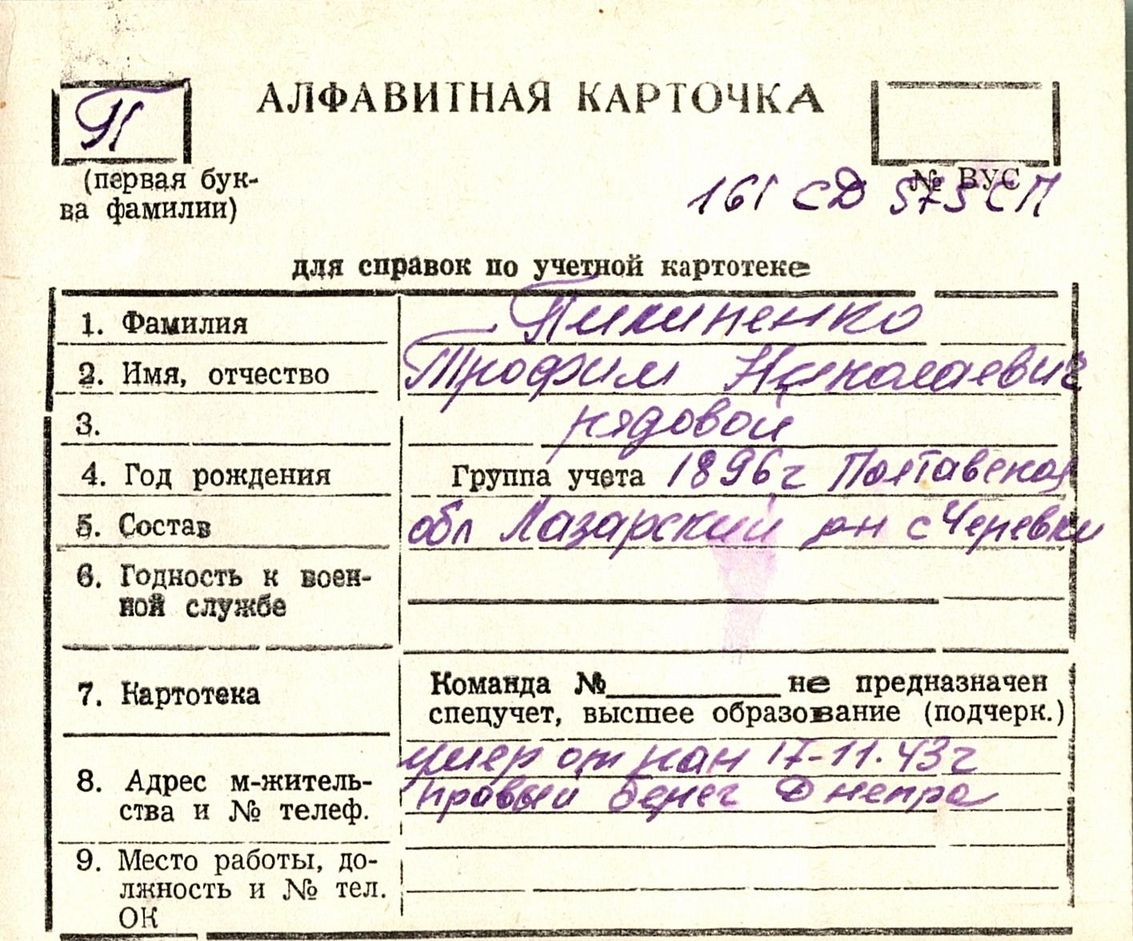 П
АЛФАВИТНАЯ КАРТОЧКА
(первая бук-
ва фамилии)
№ ВУС
161 СД 575 СП
для справок по учетной картотеке
1. Фамилия Пилипенко
2. Имя, отчество Трофим Николаевич
3. рядовой
4. Год рождения Группа учета 1896г Полтавская
5. Состав обл Лазарский рн с Черевки
6. Годность к воен-
ной службе
7. Картотека
Команда № не предназначен
спецучет, высшее образование (подчерк.)
умер от ран 17-11.43г
8. Адрес м-житель-
ства и № телеф.
правый берег Днепра
9. Место работы, до-
лжность и № тел.
ОК